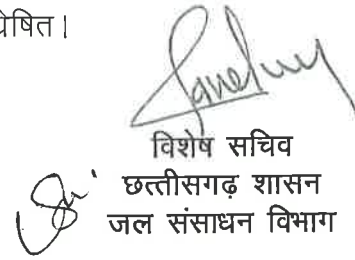 प्रेषित।
विशेष सचिव
छत्तीसगढ़ शासन
जल संसाधन विभाग